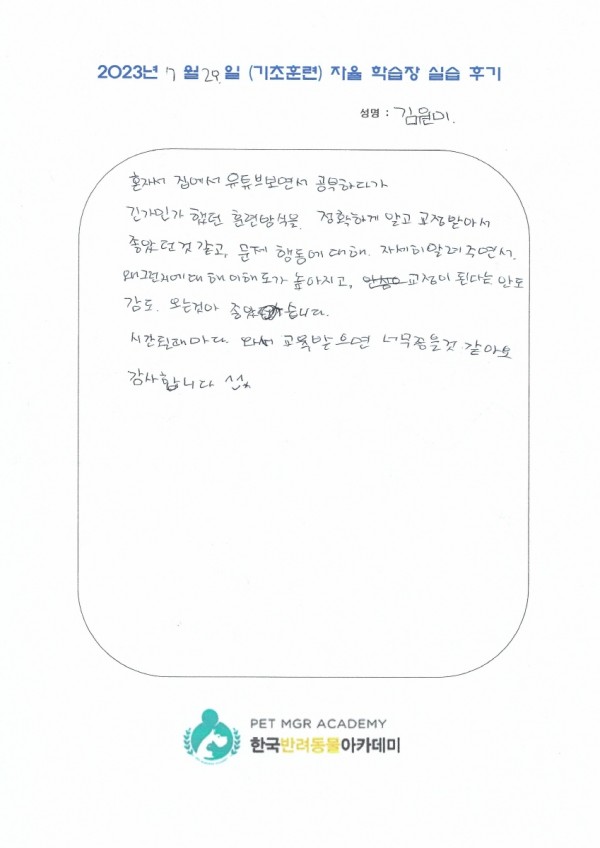 2023년 7월 29.일 (기초훈련) 자율 학습장 실습 후기
성명 : 김월미.
혼자서 집에서 유튜브보면서 공부하다가
긴가민가 했던 훈련방식을. 정확하게 알고 교정받아서
좋았던것 같고, 문제 행동에 대해. 자세히알려주면서.
왜그런지에대해 이해도가 높아지고, 교정이 된다는 안도
감도. 오는것이 좋았습니다.
시간될때마다. 와서 교육받으면 너무좋을것 같아요
감사합니다
PET MGR ACADEMY
한국반려동물아카데미